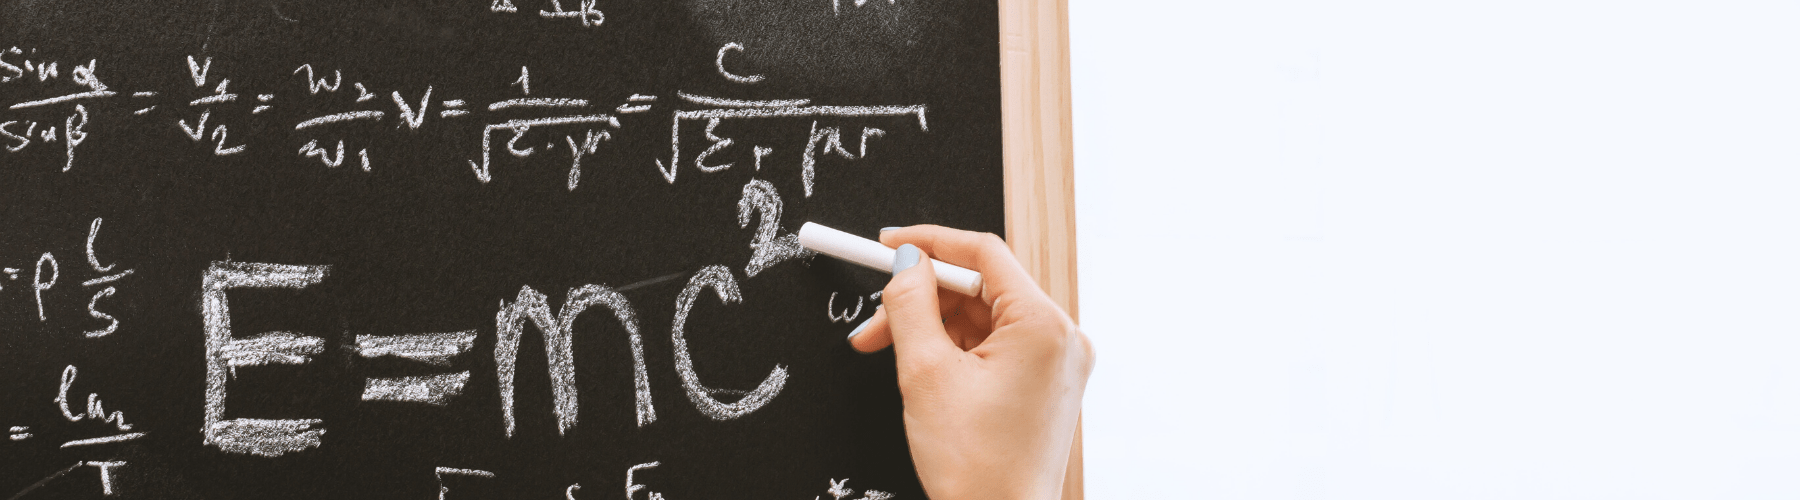 sin α / sin β = v1 / v2 = w2 / w1 V = 1 / √ε·μ = c / √εr μr
= ρ l / S
E = mc²
= ln2 / T